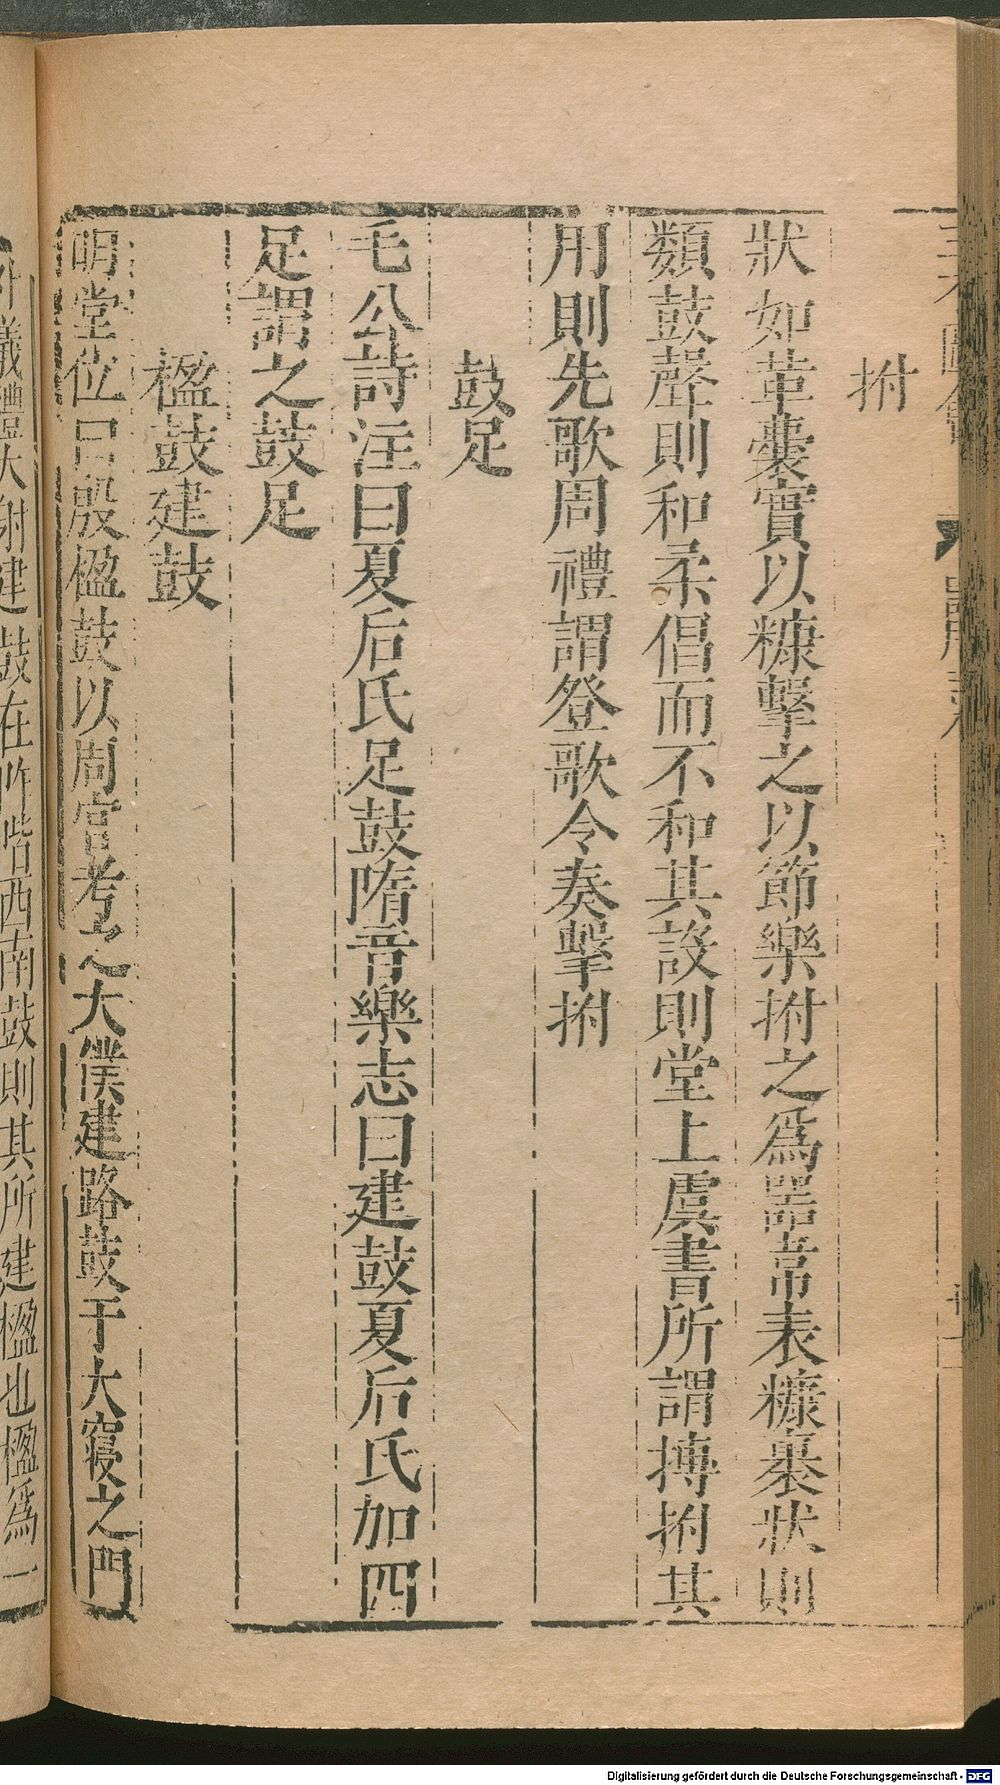 拊
狀如革囊實以糠擊之以節樂拊之爲器韋表糠裹狀則
類鼓聲則和柔倡而不和其設則堂上虞書所謂搏拊其
用則先歌周禮謂登歌令奏擊拊
鼓足
毛公詩注曰夏后氏足鼓隋音樂志曰建鼓夏后氏加四
足謂之鼓足
楹鼓建鼓
明堂位曰殷楹鼓以周官考之大僕建路鼓于大寢之門
外儀禮大射建鼓在阼階西南鼓則其所建楹也楹爲一
Digitalisierung gefördert durch die Deutsche Forschungsgemeinschaft - DFG